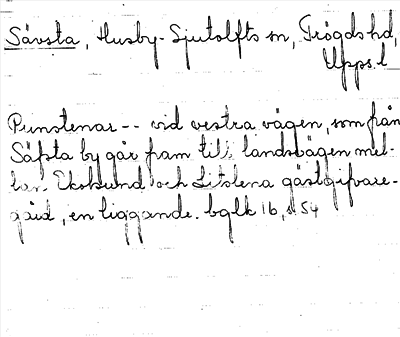 Sävsta, Husby-Sjutolfts sn, Trögds hd,
Upps. l.
Runstenar -- vid vestra vägen, som från
Säfsta by går fram till landsvägen mel-
lan Ekolsund och Litslena gästgifvare-
gård, en liggande. bglk 16, s 54